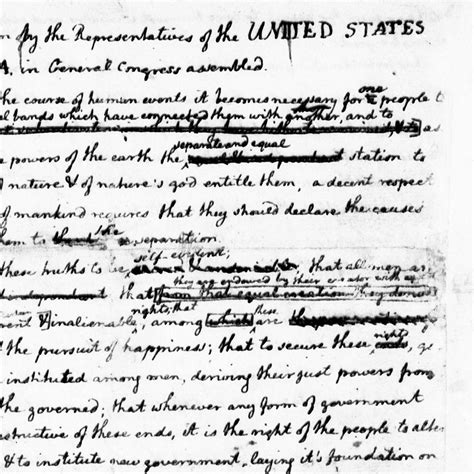 n by the Representatives of the UNITED STATES
A, in General Congress assembled.
one
he course of human events it becomes necessary for people t
al bands which have connected them with another, and to
as
separate and equal
e powers of the earth the station to
f nature & of nature's god entitle them, a decent respect
of mankind requires that they should declare the causes
the
hem to separation.
self-evident;
these truths to be that all men ar
they are endowed by their creator with
that from that equal creation they
rights; that these
rent & inalienable, among which are the
rights
f the pursuit of happiness; that to secure these ends, go
instituted among men, deriving their just powers from
the governed; that whenever any form of government
estructive of these ends, it is the right of the people to alter
& to institute new government, laying it's foundation on